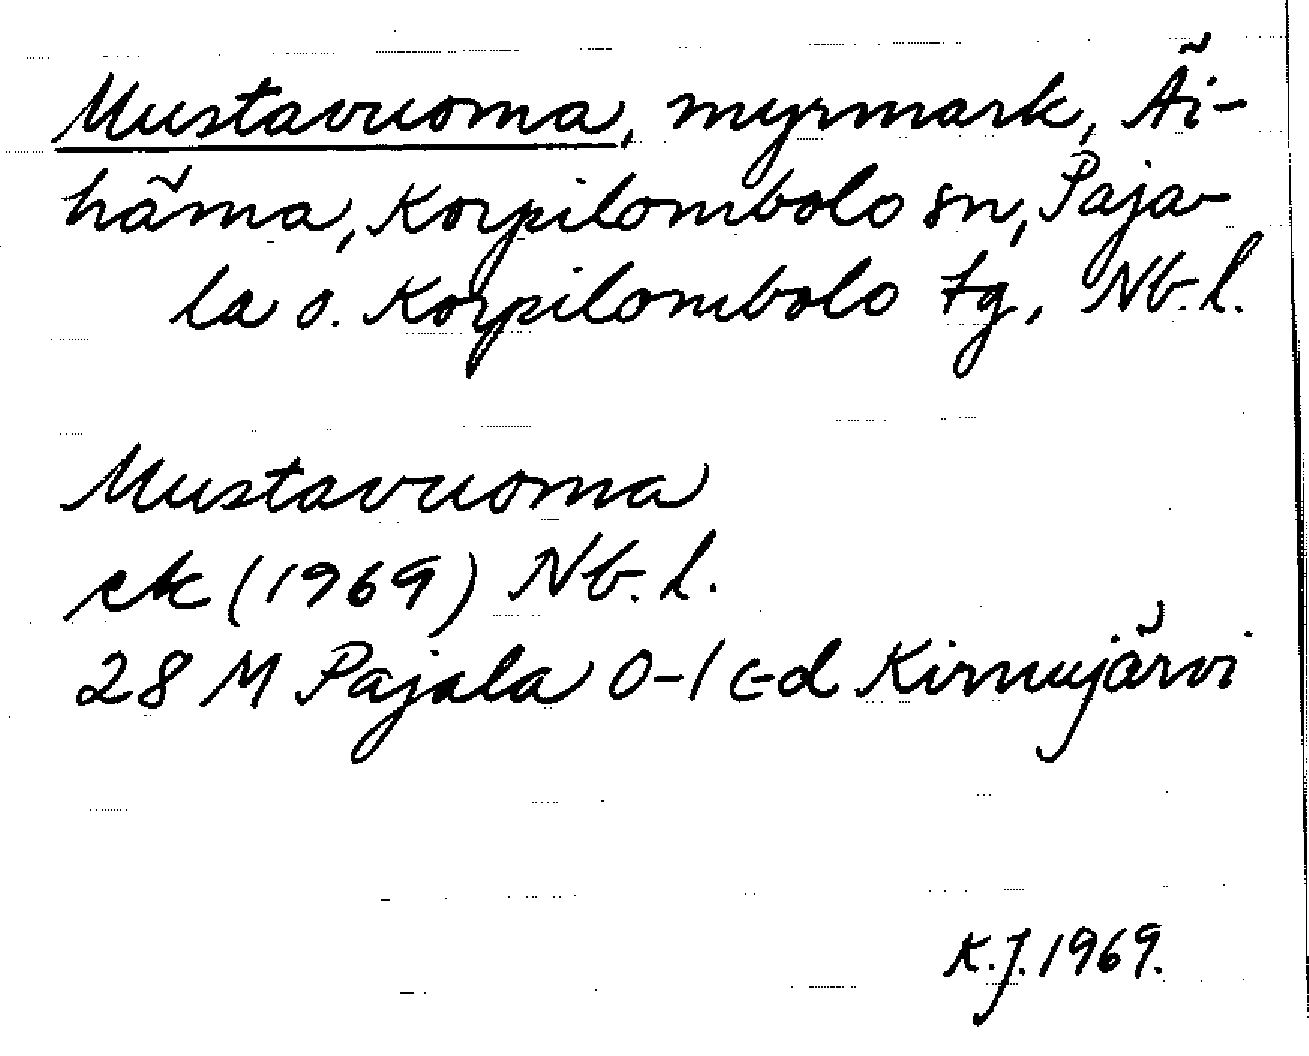 Mustavuoma, myrmark, Äi-
hämä, Korpilombolo sn, Paja-
la o. Korpilombolo tg, Nb. l.
Mustavuoma
ek (1969) Nb. l.
28 M Pajala 0-1 c-d Kirnujärvi
K.J. 1969.